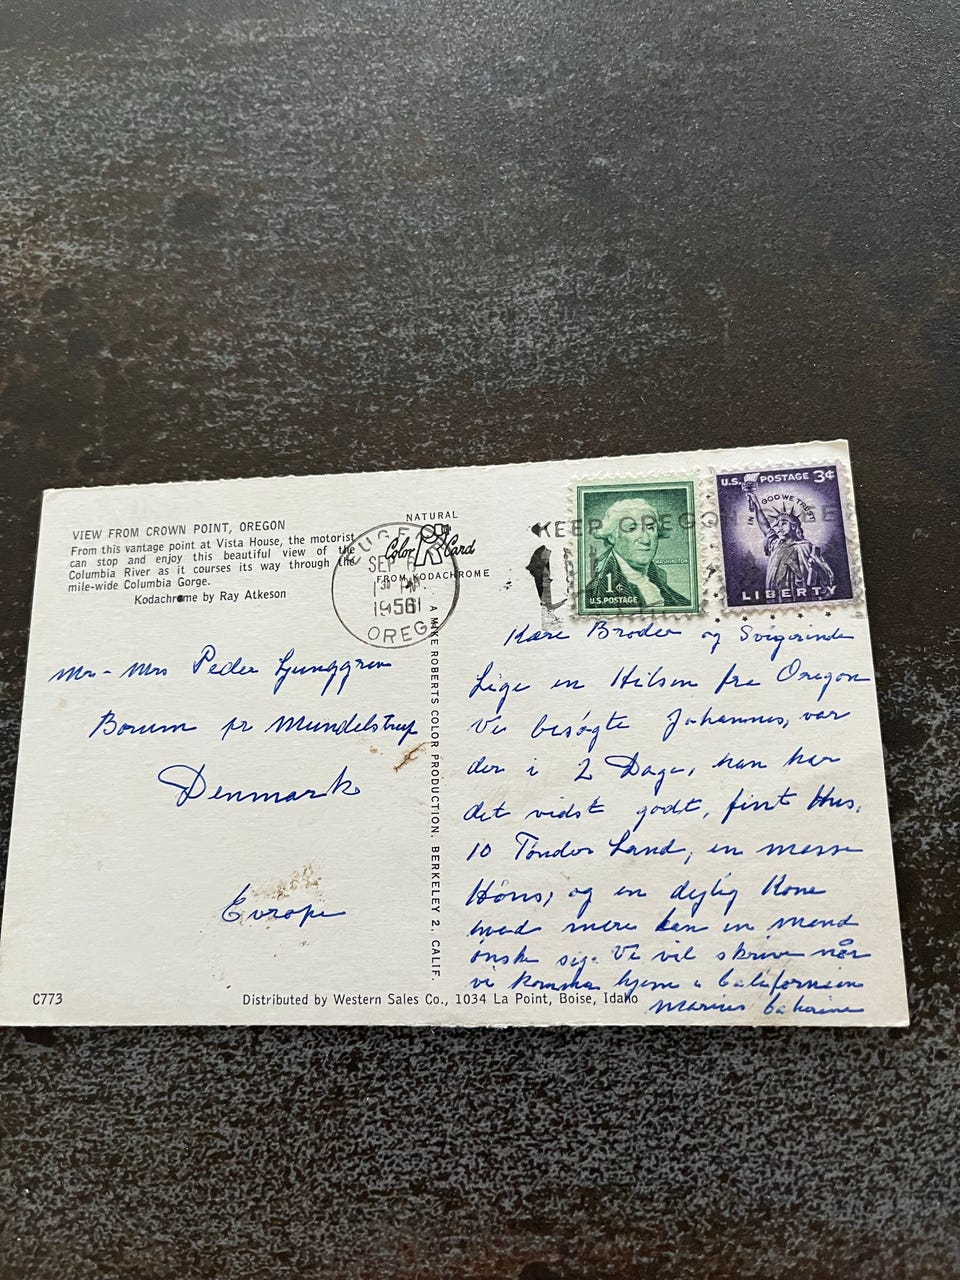 VIEW FROM CROWN POINT, OREGON
From this vantage point at Vista House, the motorist
can stop and enjoy this beautiful view of the
Columbia River as it courses its way through the
mile-wide Columbia Gorge.
Kodachrome by Ray Atkeson
NATURAL
Color Card
FROM KODACHROME
SEP 6
1 30 PM
1956
OREG
KEEP OREGON
1¢
WASHINGTON
U.S. POSTAGE
U.S. POSTAGE 3¢
IN GOD WE TRUST
LIBERTY
Mr - Mrs Peder Ljunggren
Borum pr Mundelstrup
Denmark
Europe
A MIKE ROBERTS COLOR PRODUCTION. BERKELEY 2, CALIF.
Kære Broder og Svigerinde
Lige en Hilsen fra Oregon
Vi besøgte Johannes, var
der i 2 Dage, han har
det vidst godt, fint Hus,
10 Tønder Land, en masse
Høns, og en dejlig Kone
hvad mere kan en mand
ønske sig. Vi vil skrive når
vi kommer hjem i Californien
Marius
C773
Distributed by Western Sales Co., 1034 La Point, Boise, Idaho